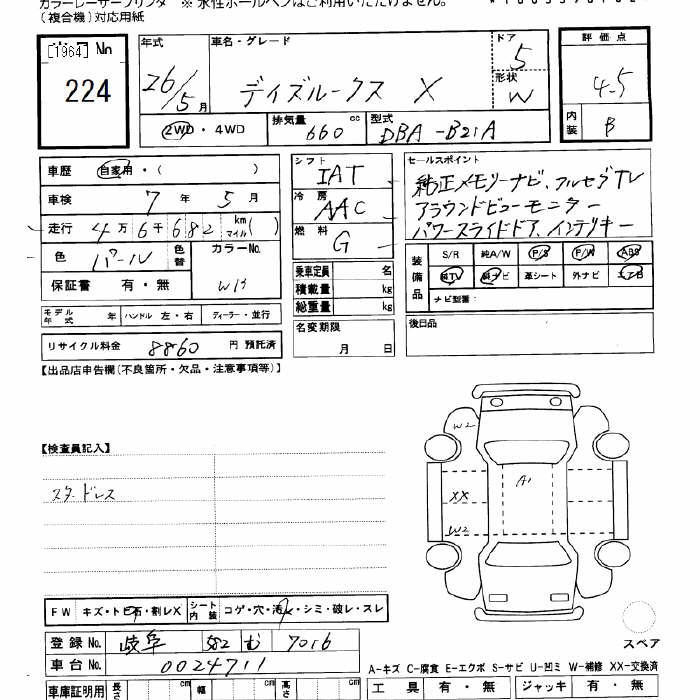 カラーレーザープリンタ ※ 水性ボールペンはご利用いただけません。
(複合機)対応用紙
[1964] No
224
年式 26/5月
車名・グレード デイズルークス X
ドア 5
形状 W
評価点 4.5
内装 B
2WD・4WD
排気量 660 cc
型式 DBA-B21A
車歴 自家用・( )
車検 7年 5月
走行 4万6千682 km マイル( )
色 パール 色替
カラーNo. W13
保証書 有・無
モデル年式 年 ハンドル 左・右 ディーラー・並行
リサイクル料金 8860 円 預託済
シフト IAT
冷房 AAC
燃料 G
乗車定員 名
積載量 kg
総重量 kg
名変期限
月 日
セールスポイント
純正メモリーナビ、フルセグTV
アラウンドビューモニター
パワースライドドア、インテリキー
装備品 S/R 純A/W P/S P/W ABS
純TV 純ナビ 革シート 外ナビ エアB
ナビ型番:
後日品
【出品店申告欄(不良箇所・欠品・注意事項等)】
【検査員記入】
スタードレス
W2
A1
XX
W2
FW キズ・トビ石・割レX シート内装 コゲ・穴・汚レ・シミ・破レ・スレ
登録No. 岐阜 582 む 7016
車台No. 0024711
スペア
A-キズ C-腐食 E-エクボ S-サビ U-凹ミ W-補修 XX-交換済
車庫証明用 長さ cm 幅 cm 高さ cm
工具 有・無 ジャッキ 有・無